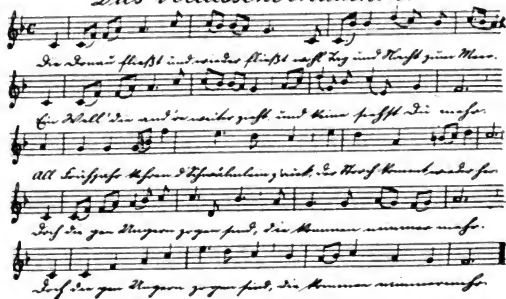 Die Donau fließt und wieder fließt wohl Tag und Nacht zum Meer.
Ein Well' die and're weiter zieht und keine siehst du mehr.
All Frühjahr kehren d'Schwälmlein z'rück, der Storch kommt wieder her
doch die gen Ungarn zogen sind, die kommen nimmer mehr.
doch die gen Ungarn zogen sind, die kommen nimmermehr.